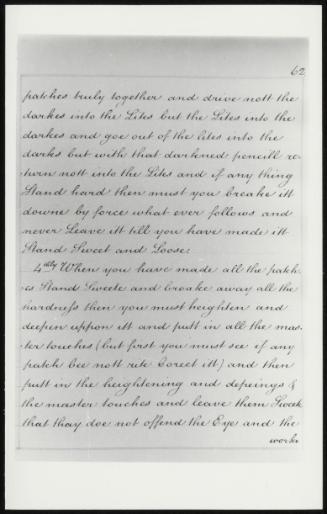 62
patches truly together and drive nott the
darkes into the Lites but the Lites into the
darkes and goe out of the lites into the
darks but with that darkned pencill re-
turn nott into the Lites and if any thing
Stand hard then must you breake itt
downe by force what ever follows and
never Leave itt till you have made itt
Stand Sweet and Loose:
4thly When you have made all the patch-
es Stand Sweete and breake away all the
hardness then you must heighten and
deepen uppon itt and putt in all the mas-
ter touches (but first you must see if any
patch bee nott rite Corect itt) and then
putt in the heightening and depeings &
the master touches and leave them Sweek
that thay doe not offend the Eye and the
works